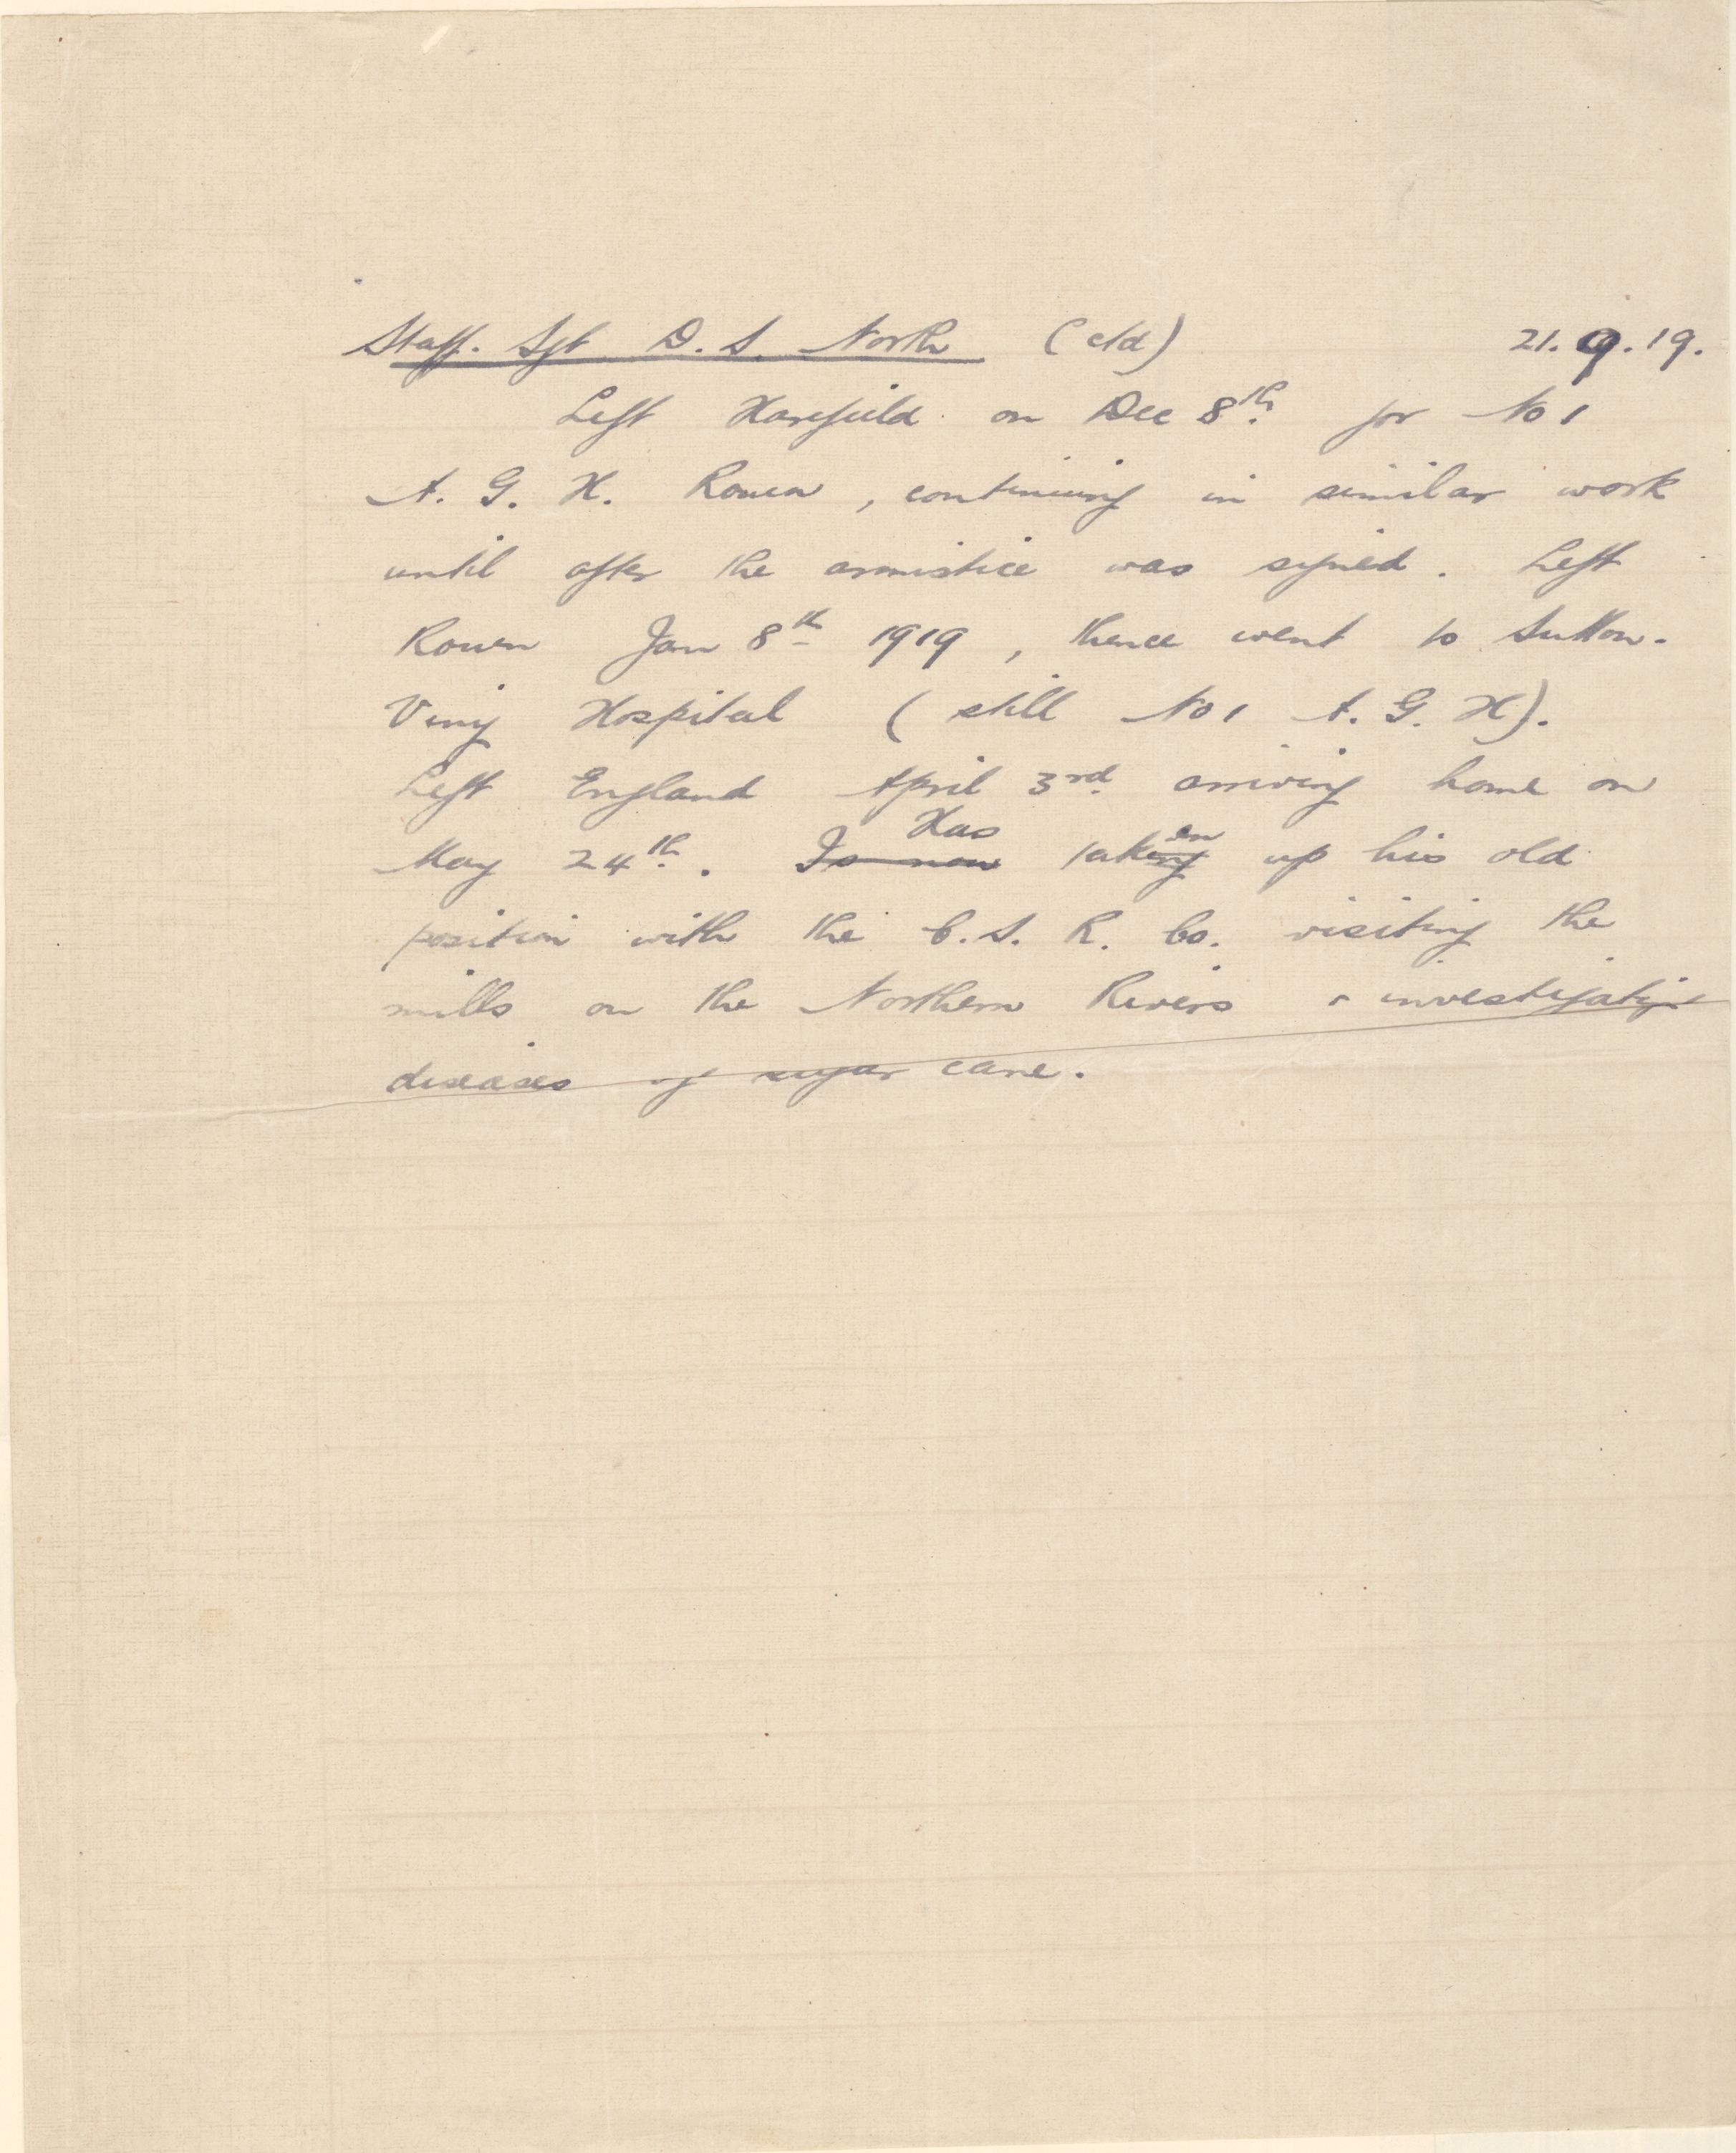 Staff. Sgt D. S. North (ctd) 21.9.19.
Left Harefield on Dec 8th. for No 1
A. G. H. Rouen, continuing in similar work
until after the armistice was signed. Left
Rouen Jan 8th 1919, thence went to Sutton-
Veny Hospital (still No 1 A. G. H).
Left England April 3rd. arriving home on
Has en
May 24th. Is now taking up his old
position with the C. S. R. Co. visiting the
mills on the Northern Rivers & investigating
diseases of sugar cane.